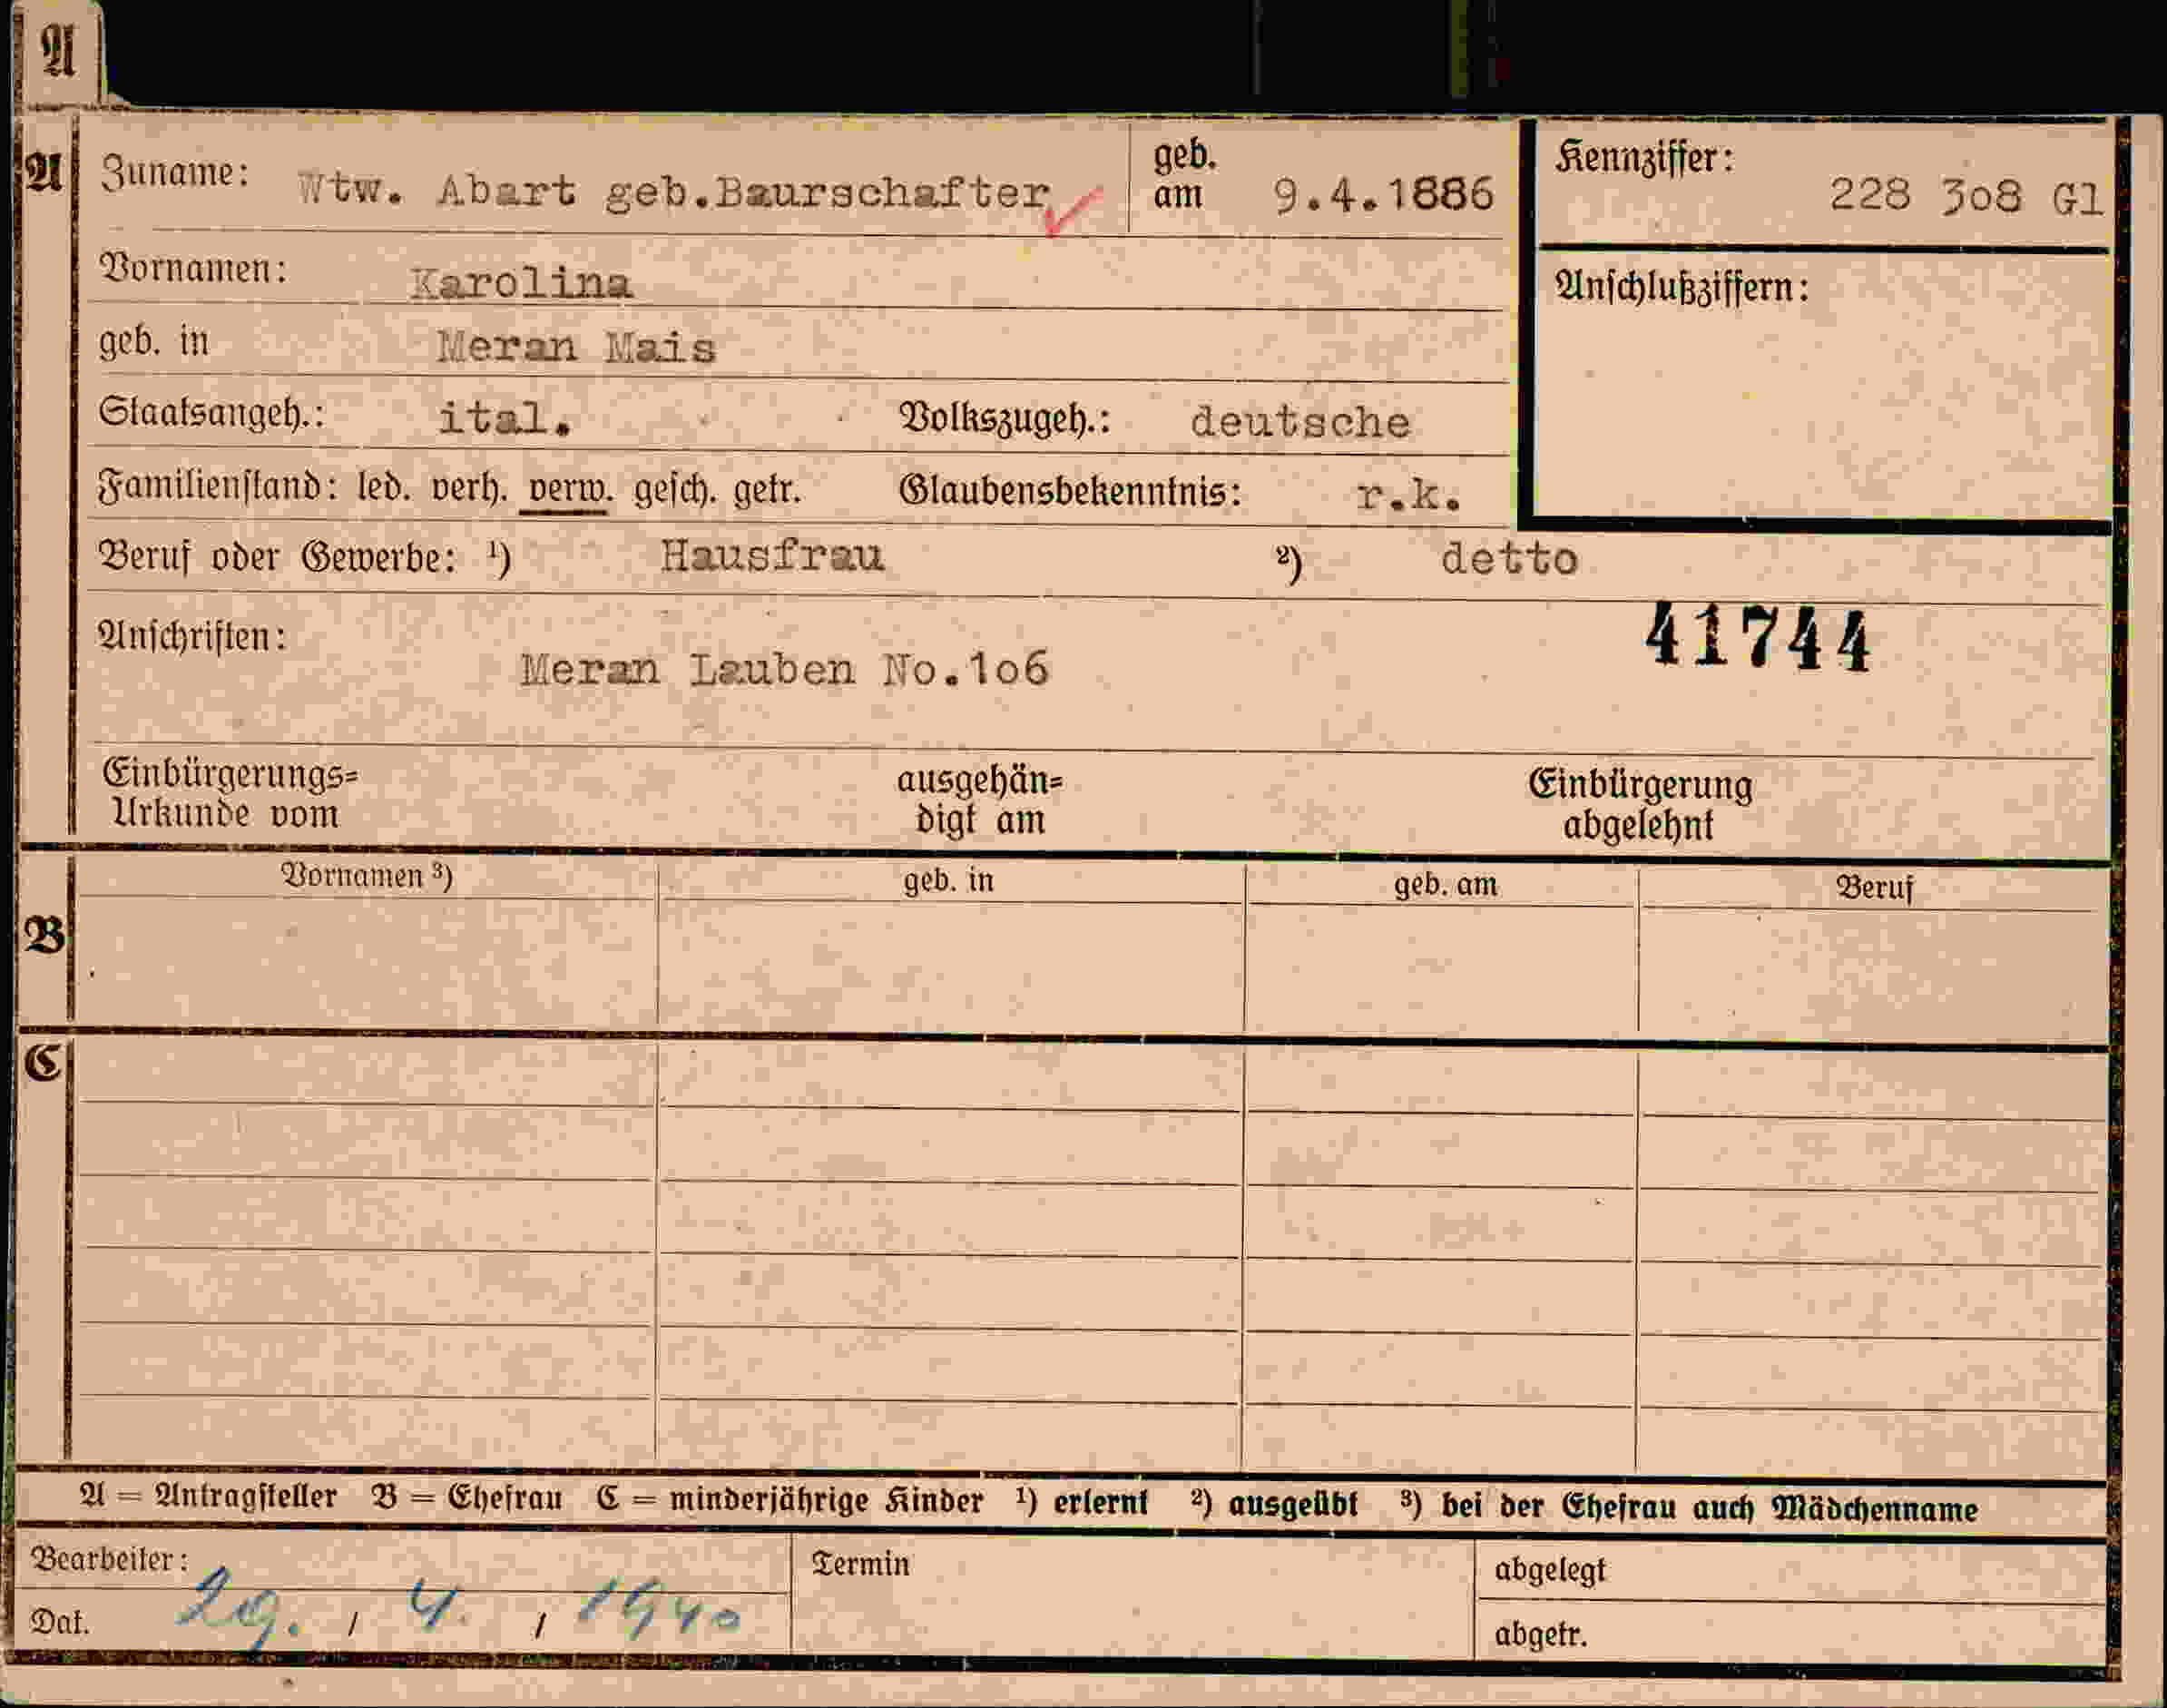 A
A Zuname: Wtw. Abart geb.Baurschafter geb. am 9.4.1886 Kennziffer: 228 3o8 Gl
Vornamen: Karolina
Anschlußziffern:
geb. in Meran Mais
Staatsangeh.: ital. Volkszugeh.: deutsche
Familienstand: led. verh. verw. gesch. getr. Glaubensbekenntnis: r.k.
Beruf oder Gewerbe: ¹) Hausfrau ²) detto
41744
Anschriften: Meran Lauben No.1o6
Einbürgerungs= ausgehän= Einbürgerung
Urkunde vom digt am abgelehnt
Vornamen ³) geb. in geb. am Beruf
B
C
A = Antragsteller B = Ehefrau C = minderjährige Kinder ¹) erlernt ²) ausgeübt ³) bei der Ehefrau auch Mädchenname
Bearbeiter: Termin abgelegt
Dat. 29. / 4. / 1940 abgetr.